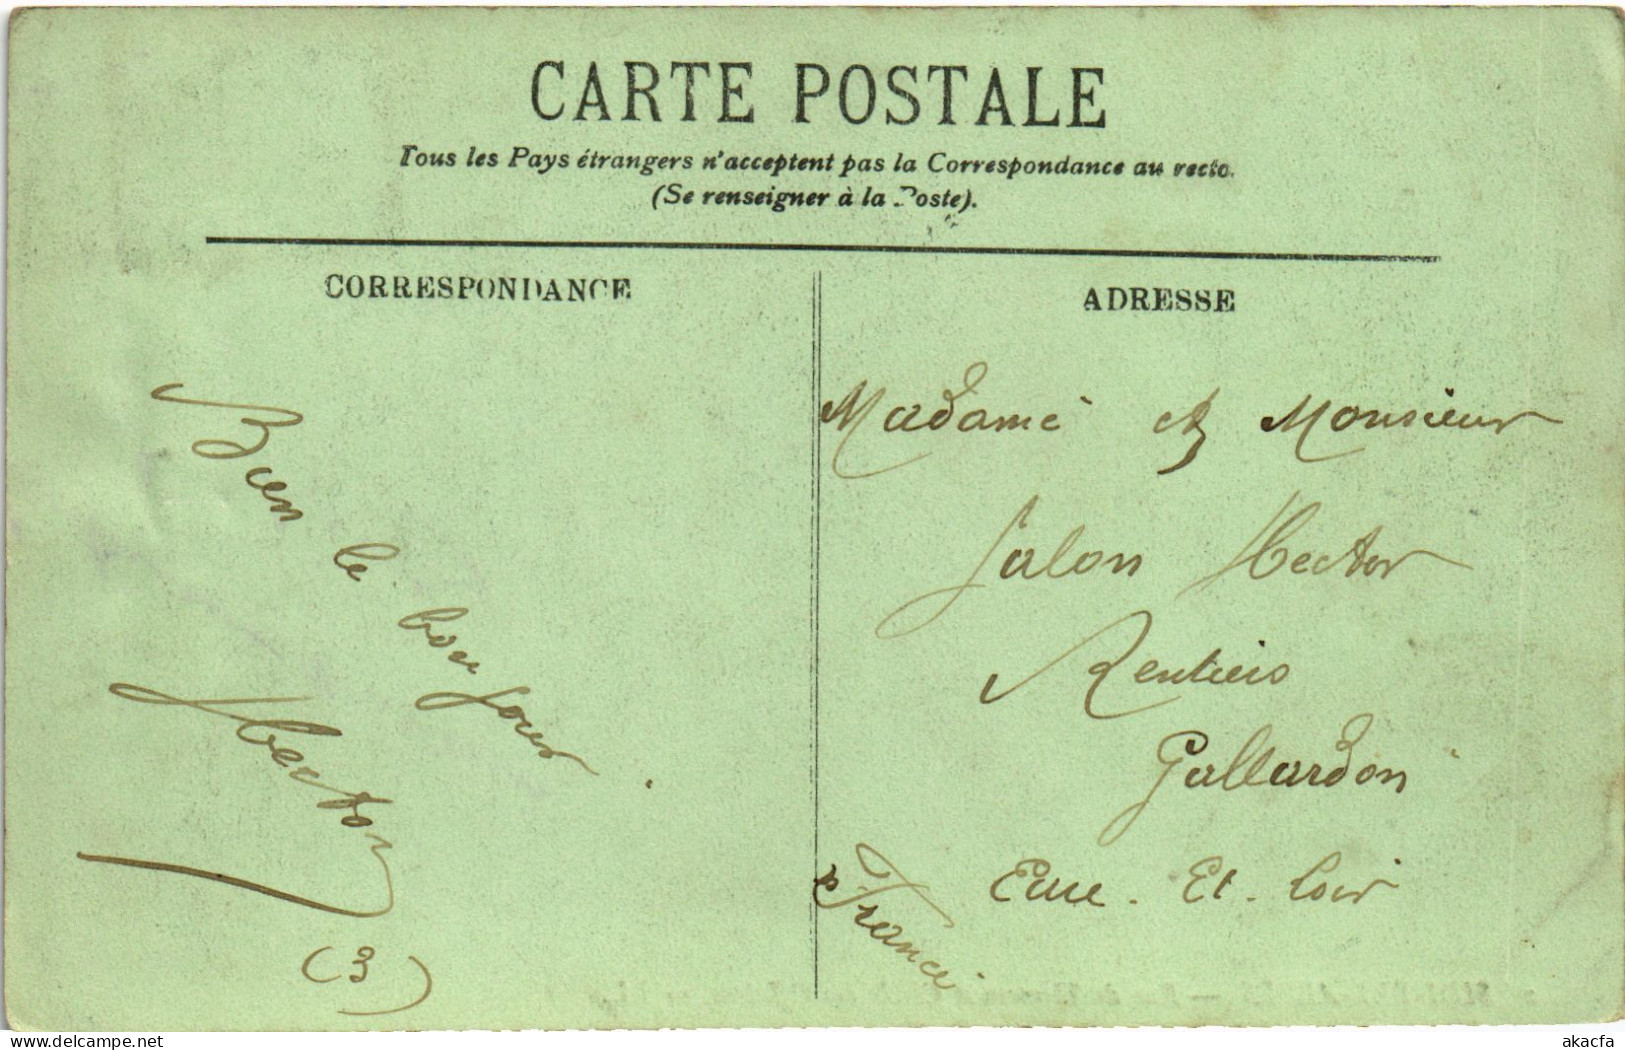 CARTE POSTALE
Tous les Pays étrangers n'acceptent pas la Correspondance au recto.
(Se renseigner à la Poste).
CORRESPONDANCE
Bien le bonjour.
Hector
(3)
ADRESSE
Madame et Monsieur
Jalon Hector
Rentiers
Gallardon
Eure. Et. Loir
France
delcampe.net
akacfa